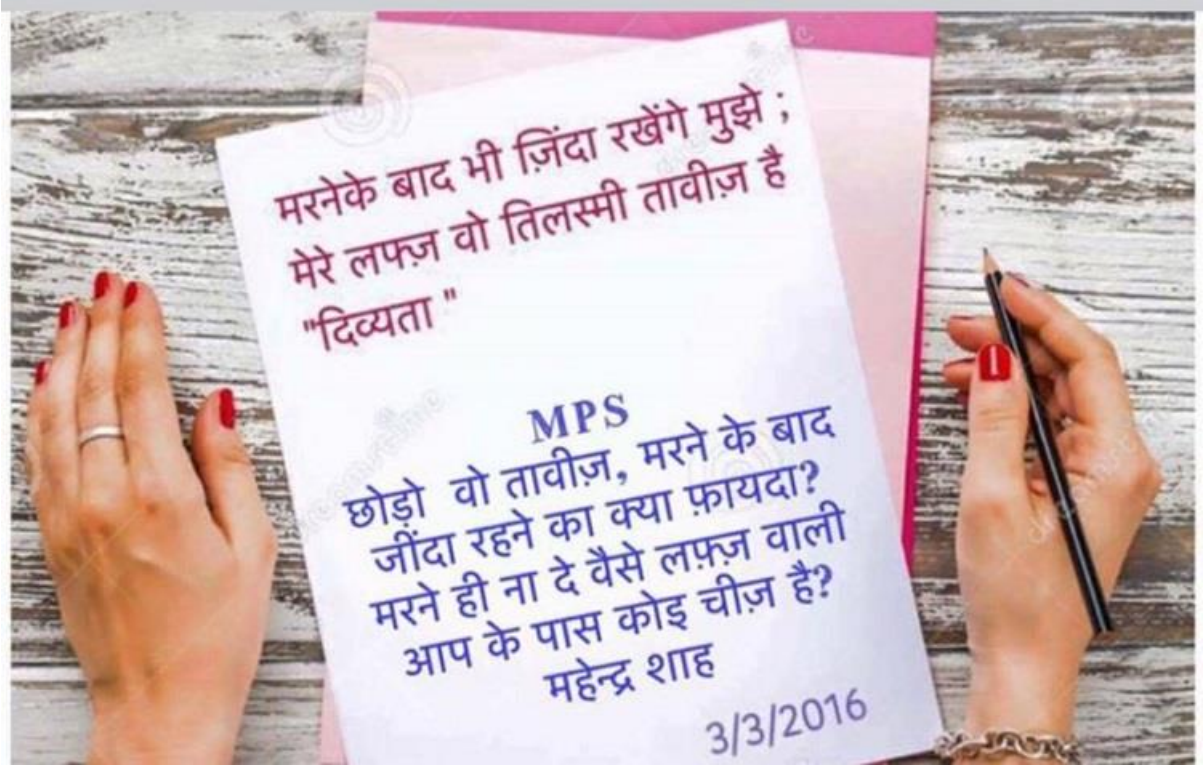 मरनेके बाद भी ज़िंदा रखेंगे मुझे ;
मेरे लफ्ज़ वो तिलस्मी तावीज़ है
"दिव्यता "
MPS
छोड़ो वो तावीज़, मरने के बाद
जींदा रहने का क्या फ़ायदा?
मरने ही ना दे वैसे लफ़्ज़ वाली
आप के पास कोइ चीज़ है?
महेन्द्र शाह
3/3/2016